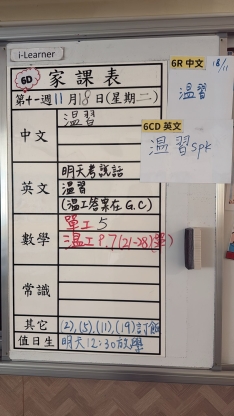 i-Learner
6D 家課表
第十一週11月18日(星期二)
中文
溫習
英文
明天考説話
溫習
(溫工答案在G.C)
數學
單工5
溫工P.7(21-28)(單)
常識
其它
(2),(5),(11),(19)訂飯
值日生
明天12:30放學
6R 中文
18/11
溫習
6CD 英文
溫習spk